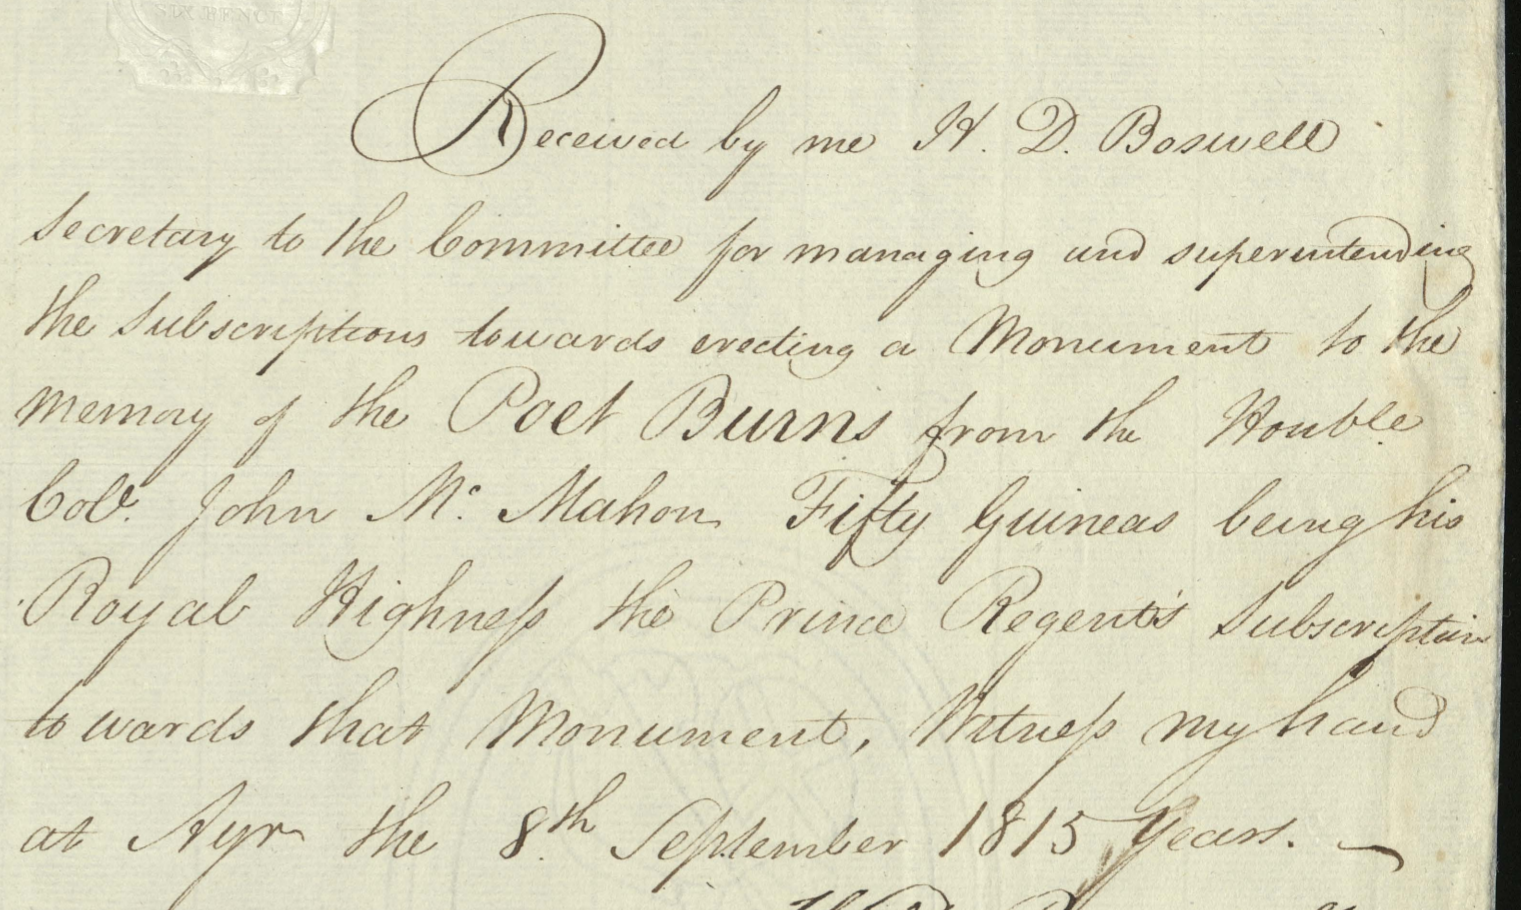 SIXPENCE
Received by me H. D. Boswell
Secretary to the Committee for managing and superintending
the Subscriptions towards erecting a Monument to the
Memory of the Poet Burns from the Honble
Col. John Mc. Mahon Fifty Guineas being his
Royal Highness the Prince Regent's Subscription
towards that Monument, Witness my hand
at Ayr the 8th September 1815 Years.